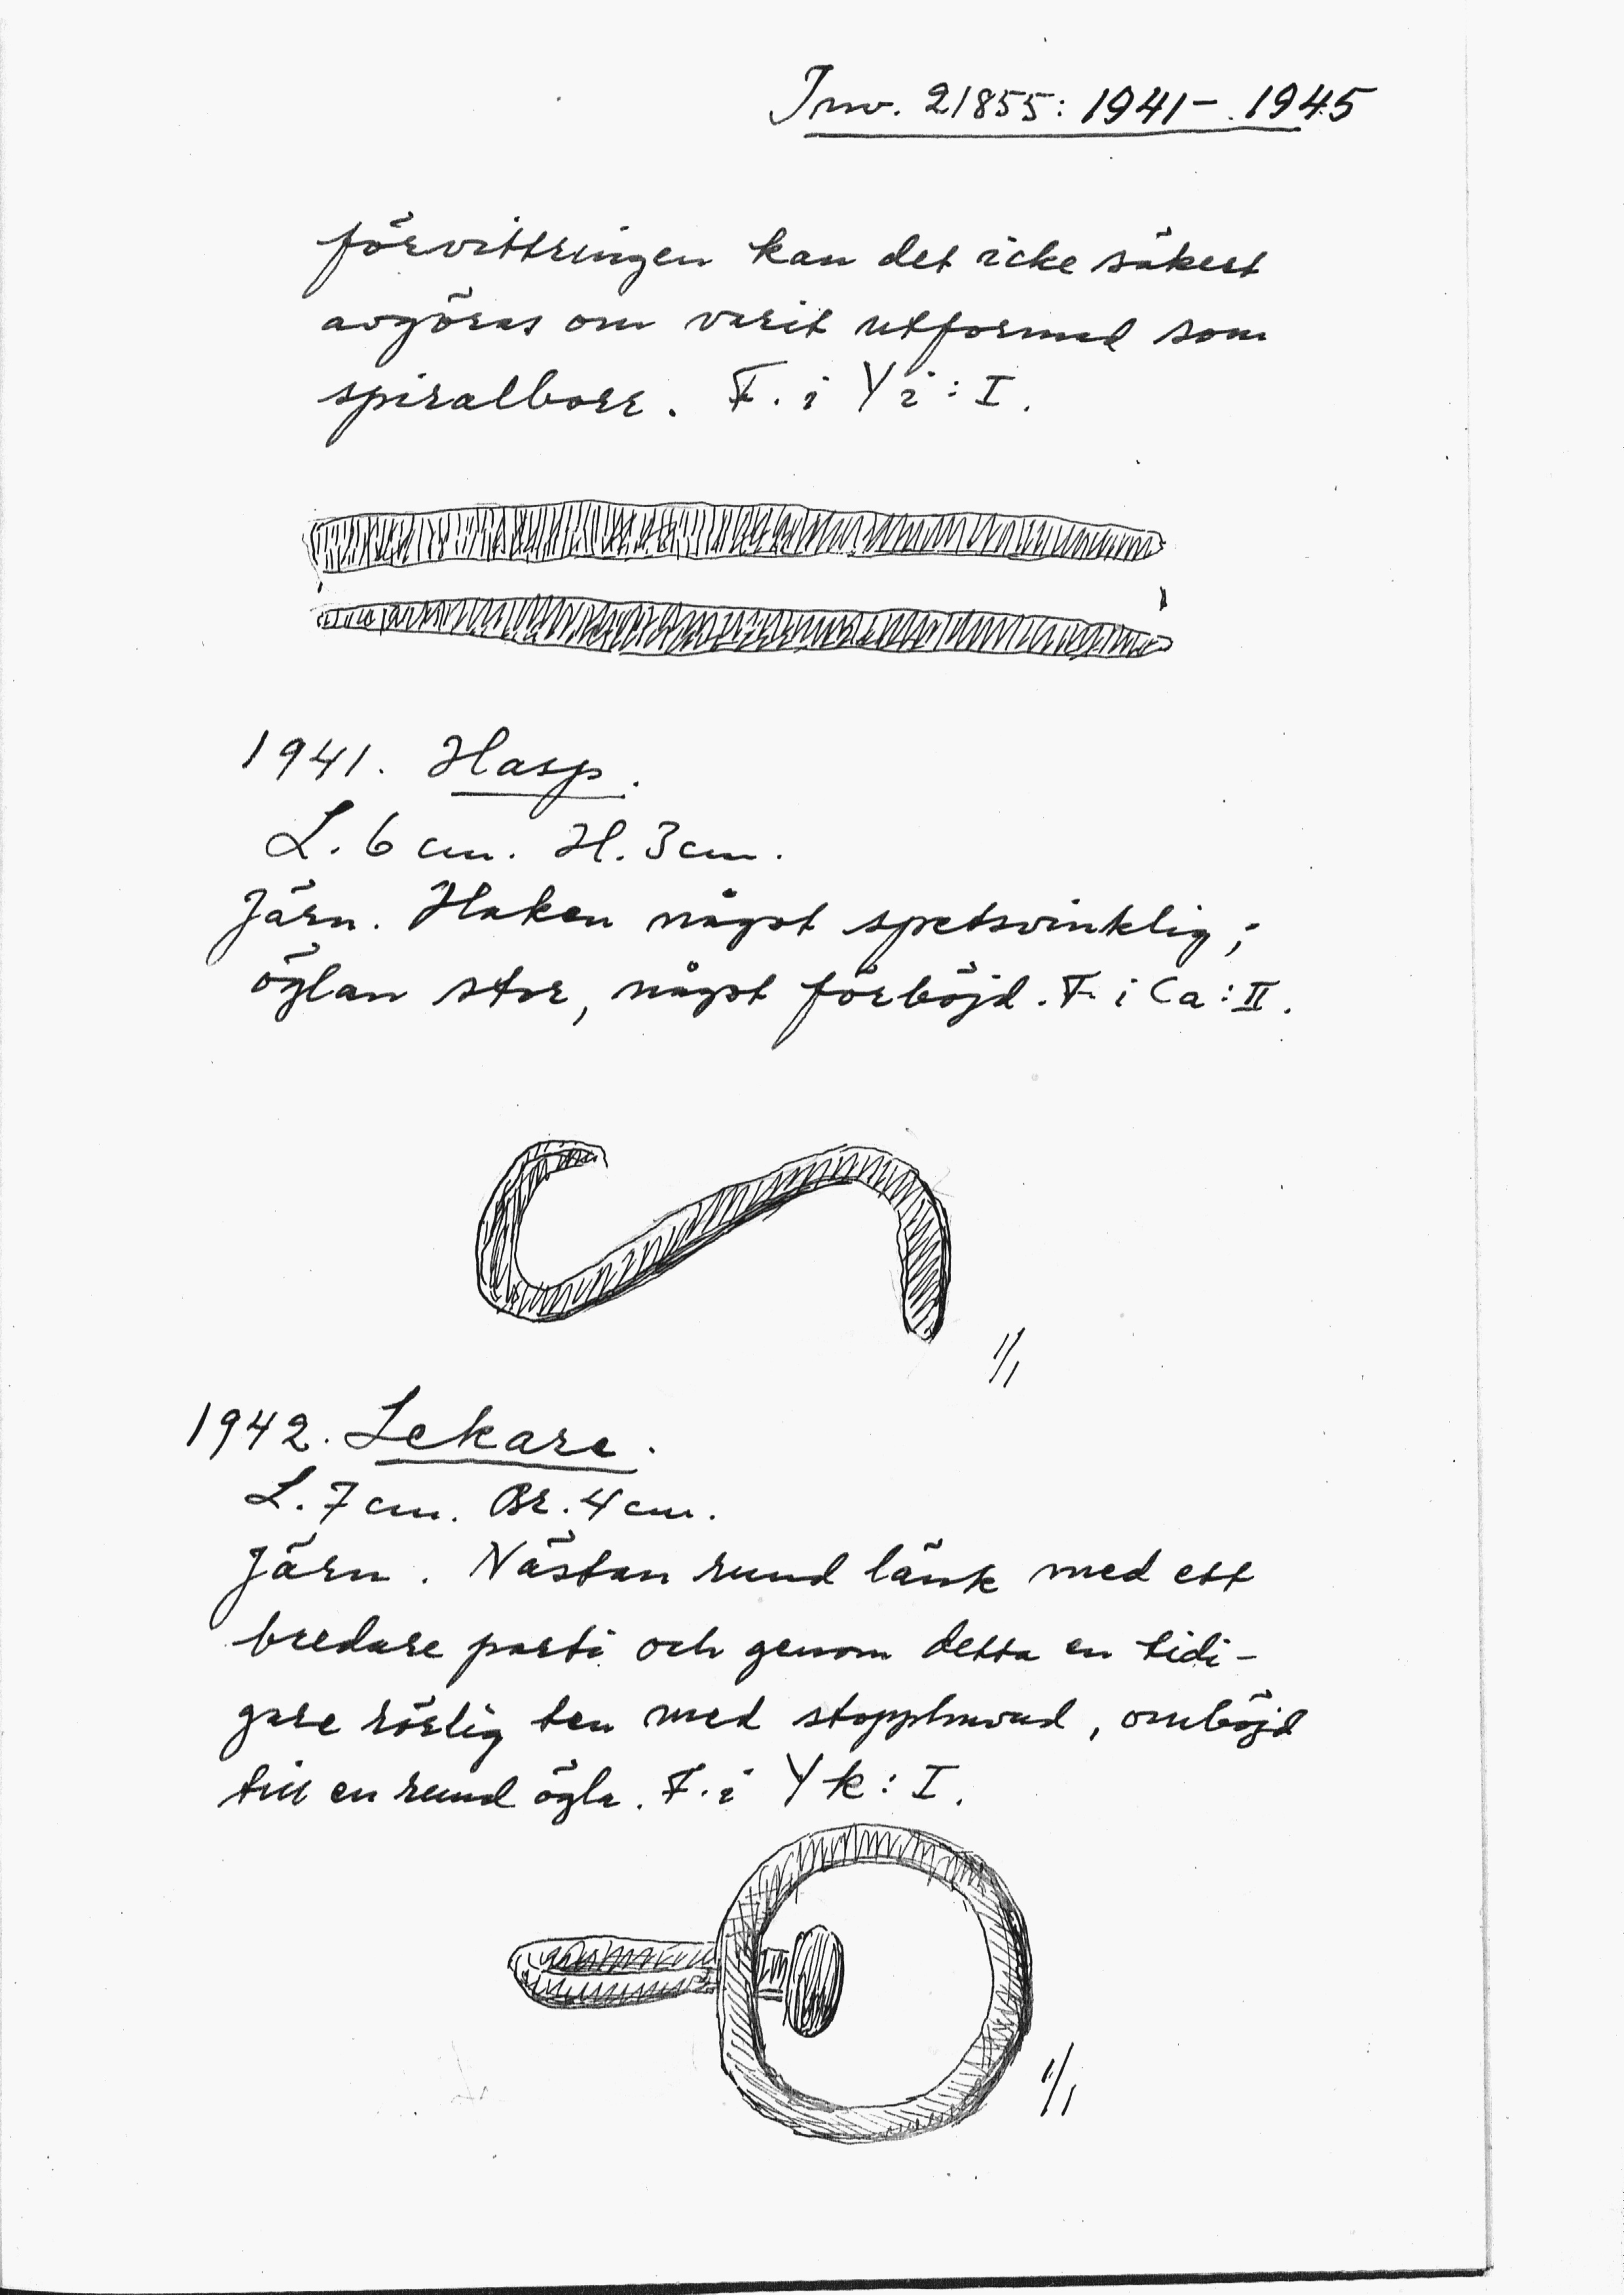 Inv. 21855: 1941-1945
förvittringen kan det icke säkert
avgöras om varit utformad som
spiralborr. F. i Yi: I.
1941. Hasp.
L. 6 cm. H. 3 cm.
Järn. Haken något spetsvinklig;
öglan stor, något förböjd. F. i Ca: II.
1/1
1942. Lekare.
L. 7 cm. Br. 4 cm.
Järn. Nästan rund länk med ett
bredare parti och genom detta en tidi-
gare rörlig ten med stopphuvud, omböjd
till en rund ögla. F. i Yk: I.
1/1